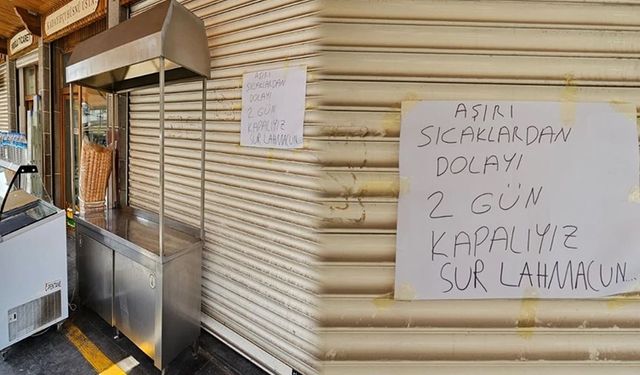 AŞIRI
SICAKLARDAN
DOLAYI
2 GÜN
KAPALIYIZ
SUR LAHMACUN...
AŞIRI
SICAKLARDAN
DOLAYI
2 GÜN
KAPALIYIZ
SUR LAHMACUN...